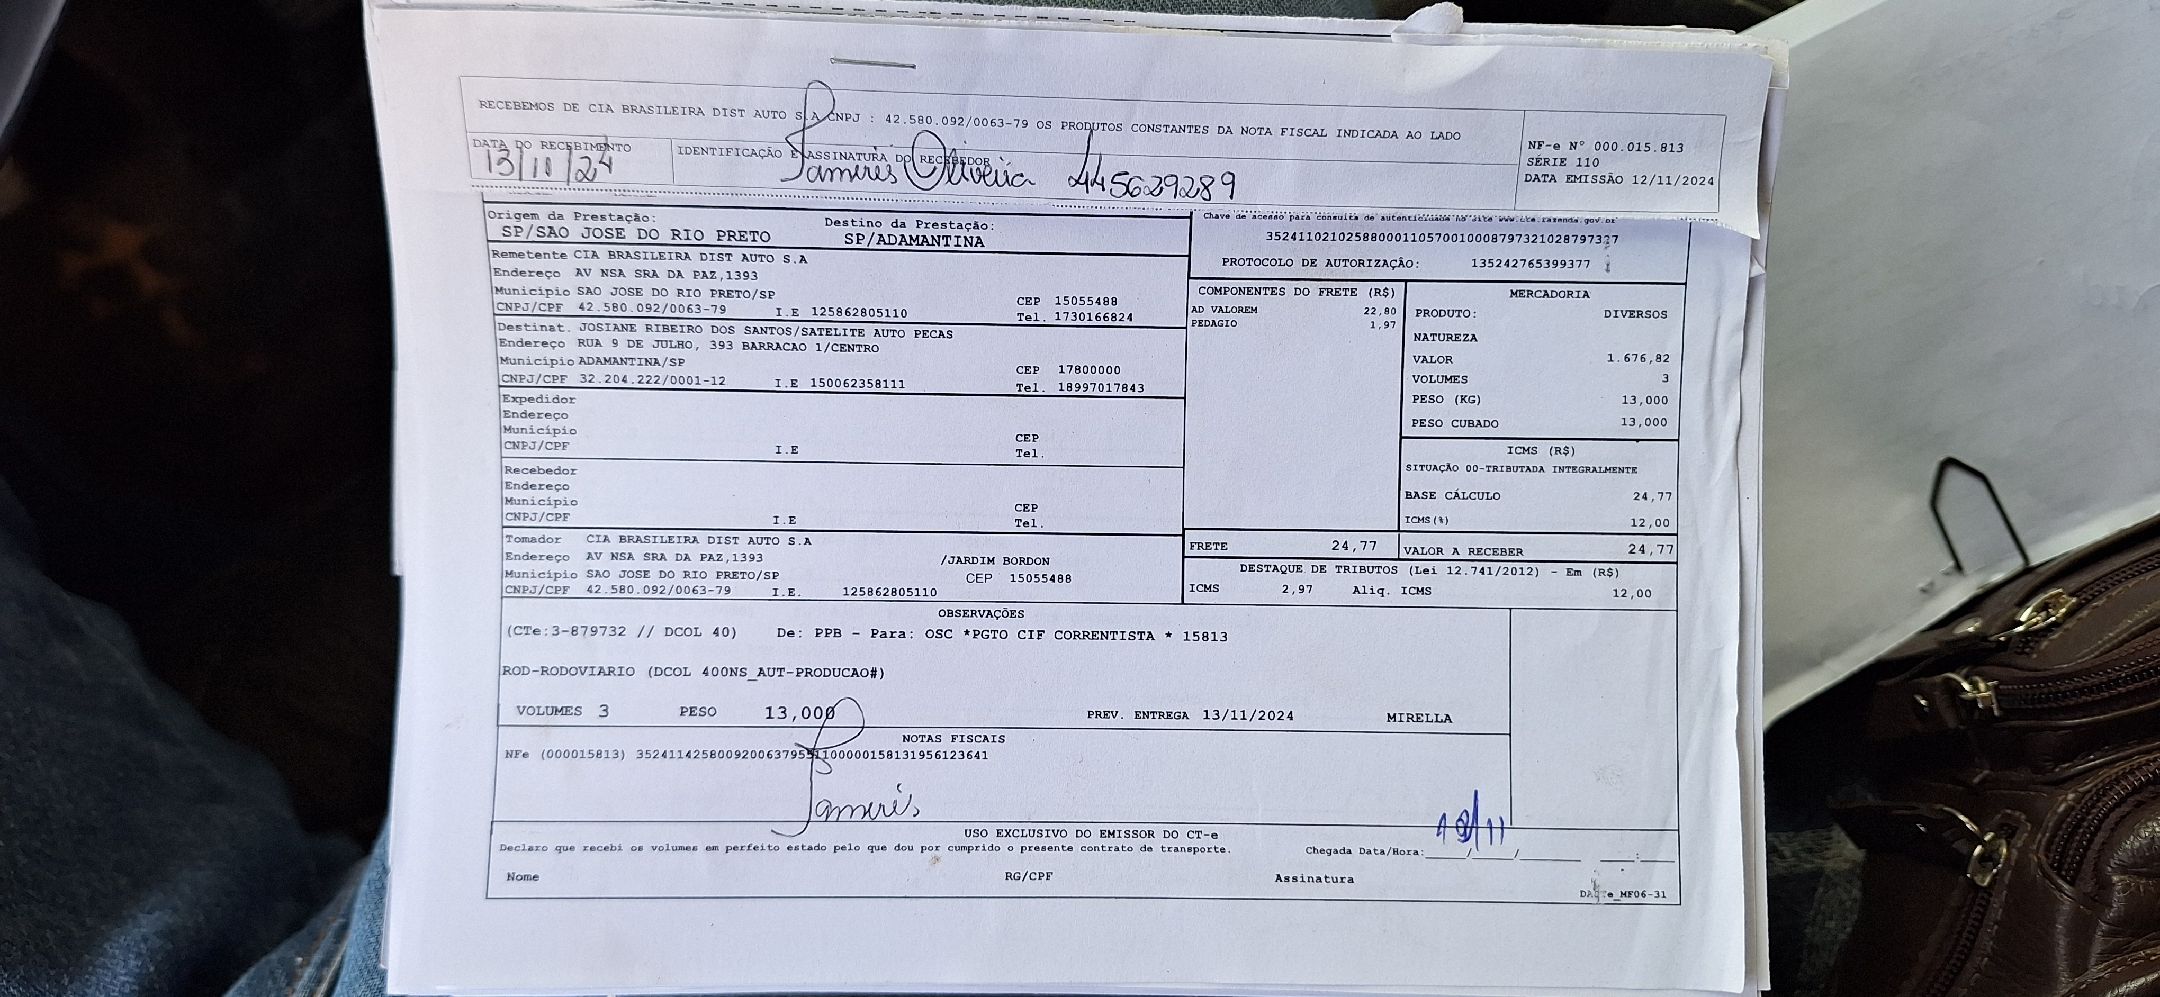 RECEBEMOS DE CIA BRASILEIRA DIST AUTO S.A CNPJ : 42.580.092/0063-79 OS PRODUTOS CONSTANTES DA NOTA FISCAL INDICADA AO LADO
DATA DO RECEBIMENTO
13/11/24
IDENTIFICAÇÃO E ASSINATURA DO RECEBEDOR
Tamiris Oliveira 445629289
NF-e N° 000.015.813
SÉRIE 110
DATA EMISSÃO 12/11/2024
Origem da Prestação:
SP/SAO JOSE DO RIO PRETO
Destino da Prestação:
SP/ADAMANTINA
Chave de acesso para consulta de autenticidade no site www.cte.fazenda.gov.br
PROTOCOLO DE AUTORIZAÇÃO: 135242765399377
Remetente CIA BRASILEIRA DIST AUTO S.A
Endereço AV NSA SRA DA PAZ,1393
Município SAO JOSE DO RIO PRETO/SP CEP 15055488
CNPJ/CPF 42.580.092/0063-79 I.E 125862805110 Tel. 1730166824
Destinat. JOSIANE RIBEIRO DOS SANTOS/SATELITE AUTO PECAS
Endereço RUA 9 DE JULHO, 393 BARRACAO 1/CENTRO
Município ADAMANTINA/SP CEP 17800000
CNPJ/CPF 32.204.222/0001-12 I.E 150062358111 Tel. 18997017843
Expedidor
Endereço
Município CEP
CNPJ/CPF I.E Tel.
Recebedor
Endereço
Município CEP
CNPJ/CPF I.E Tel.
Tomador CIA BRASILEIRA DIST AUTO S.A
Endereço AV NSA SRA DA PAZ,1393 /JARDIM BORDON
Município SAO JOSE DO RIO PRETO/SP CEP 15055488
CNPJ/CPF 42.580.092/0063-79 I.E. 125862805110
COMPONENTES DO FRETE (R$)
AD VALOREM 22,80
PEDAGIO 1,97
FRETE 24,77
MERCADORIA
PRODUTO: DIVERSOS
NATUREZA
VALOR 1.676,82
VOLUMES 3
PESO (KG) 13,000
PESO CUBADO 13,000
ICMS (R$)
SITUAÇÃO 00-TRIBUTADA INTEGRALMENTE
BASE CÁLCULO 24,77
ICMS(%) 12,00
VALOR A RECEBER 24,77
DESTAQUE DE TRIBUTOS (Lei 12.741/2012) - Em (R$)
ICMS 2,97 Aliq. ICMS 12,00
OBSERVAÇÕES
(CTe:3-879732 // DCOL 40) De: PPB - Para: OSC *PGTO CIF CORRENTISTA * 15813
ROD-RODOVIARIO (DCOL 400NS_AUT-PRODUCAO#)
VOLUMES 3 PESO 13,000 PREV. ENTREGA 13/11/2024 MIRELLA
NOTAS FISCAIS
NFe (000015813)
Tamiris
USO EXCLUSIVO DO EMISSOR DO CT-e
Declaro que recebi os volumes em perfeito estado pelo que dou por cumprido o presente contrato de transporte.
Chegada Data/Hora:____/____/______ ____:____
Nome RG/CPF Assinatura